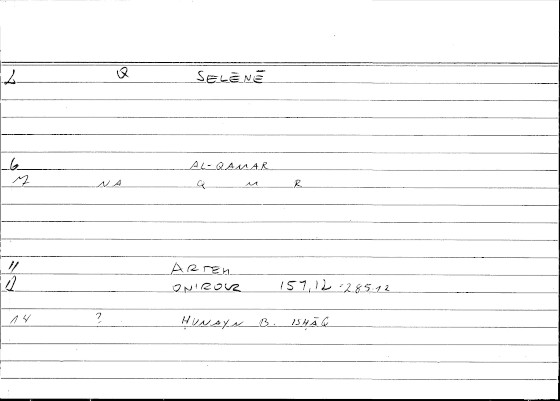 2 Q SELĒNĒ
6 AL-QAMAR
M NA Q M R
11 ARTEM
12 ONIROCR 157,12 - 285,12
14 ? ḤUNAYN B. ISḤĀQ